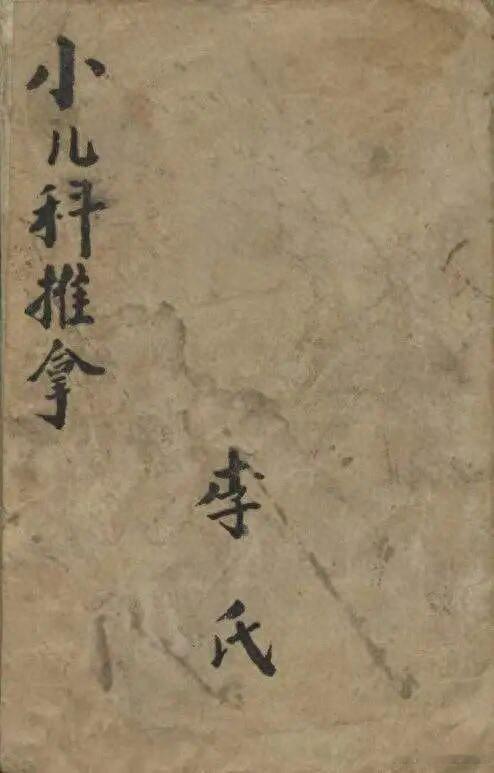 小儿科推拿
李氏